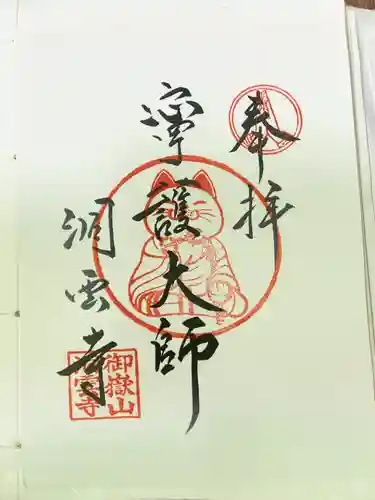 奉拝
濘護大師
洞雲寺
御嶽山
洞雲寺